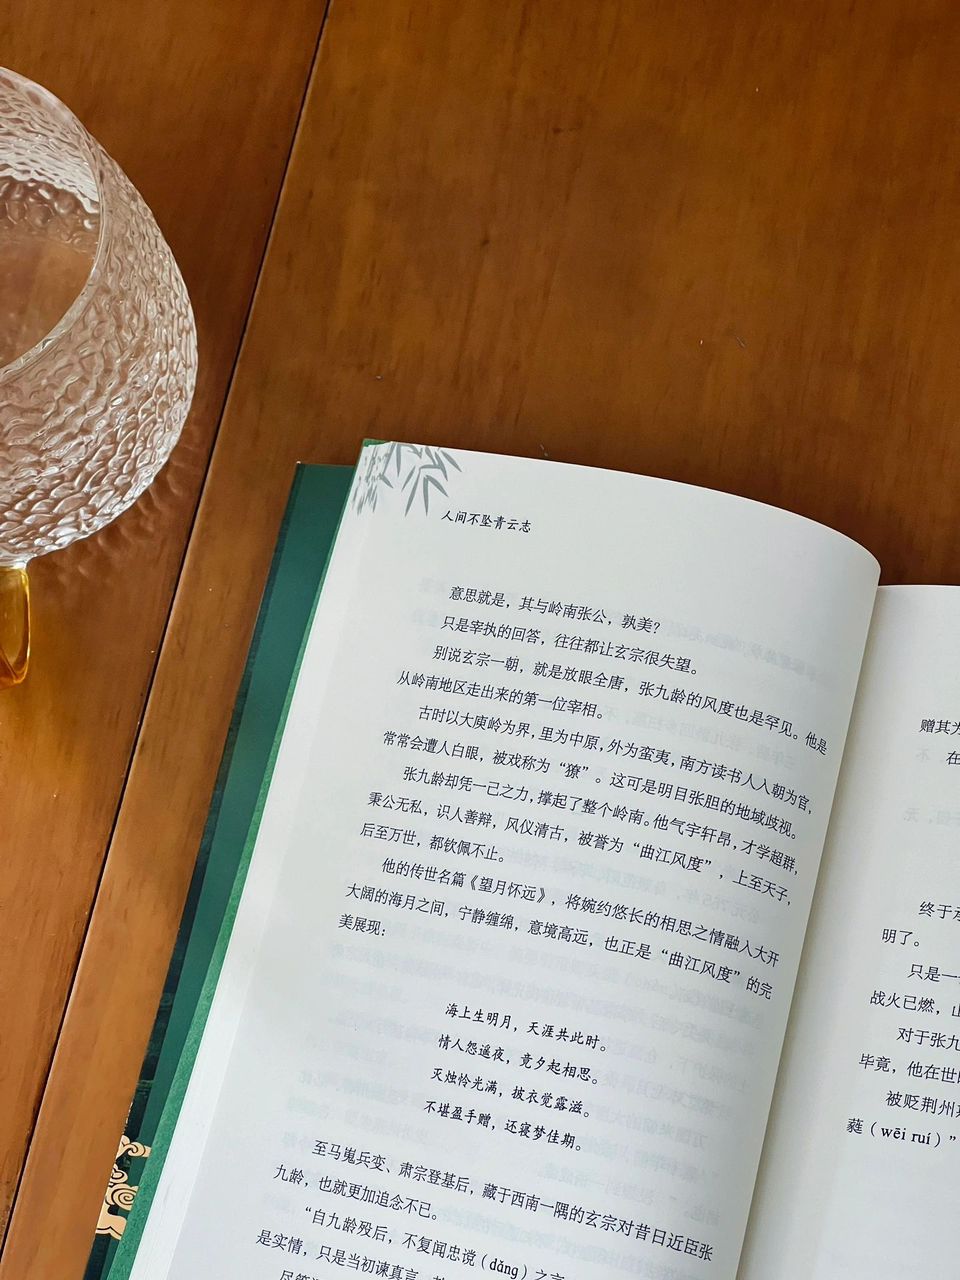 人间不坠青云志
意思就是，其与岭南张公，孰美？
只是宰执的回答，往往都让玄宗很失望。
别说玄宗一朝，就是放眼全唐，张九龄的风度也是罕见。他是
从岭南地区走出来的第一位宰相。
古时以大庾岭为界，里为中原，外为蛮夷，南方读书人入朝为官，
常常会遭人白眼，被戏称为“獠”。这可是明目张胆的地域歧视。
张九龄却凭一己之力，撑起了整个岭南。他气宇轩昂，才学超群，
秉公无私，识人善辩，风仪清古，被誉为“曲江风度”，上至天子，
后至万世，都钦佩不止。
他的传世名篇《望月怀远》，将婉约悠长的相思之情融入大开
大阔的海月之间，宁静缠绵，意境高远，也正是“曲江风度”的完
美展现：
海上生明月，天涯共此时。
情人怨遥夜，竟夕起相思。
灭烛怜光满，披衣觉露滋。
不堪盈手赠，还寝梦佳期。
至马嵬兵变、肃宗登基后，藏于西南一隅的玄宗对昔日近臣张
九龄，也就更加追念不已。
“自九龄殁后，不复闻忠谠（dǎng）之言
是实情，只是当初谏真言，
尽管
赠其为
在
终于
明了。
只是一
战火已燃，
对于张九
毕竟，他在世
被贬荆州
蕤（wēi ruí）”